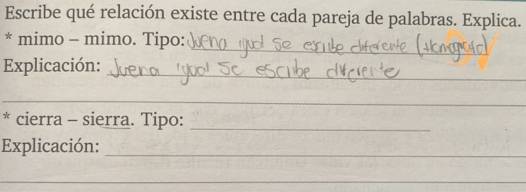 Escribe qué relación existe entre cada pareja de palabras. Explica.
* mimo – mimo. Tipo: Juena igual se escribe diferente
Explicación: Juena igual se escribe diferente
* cierra – sierra. Tipo:
Explicación: